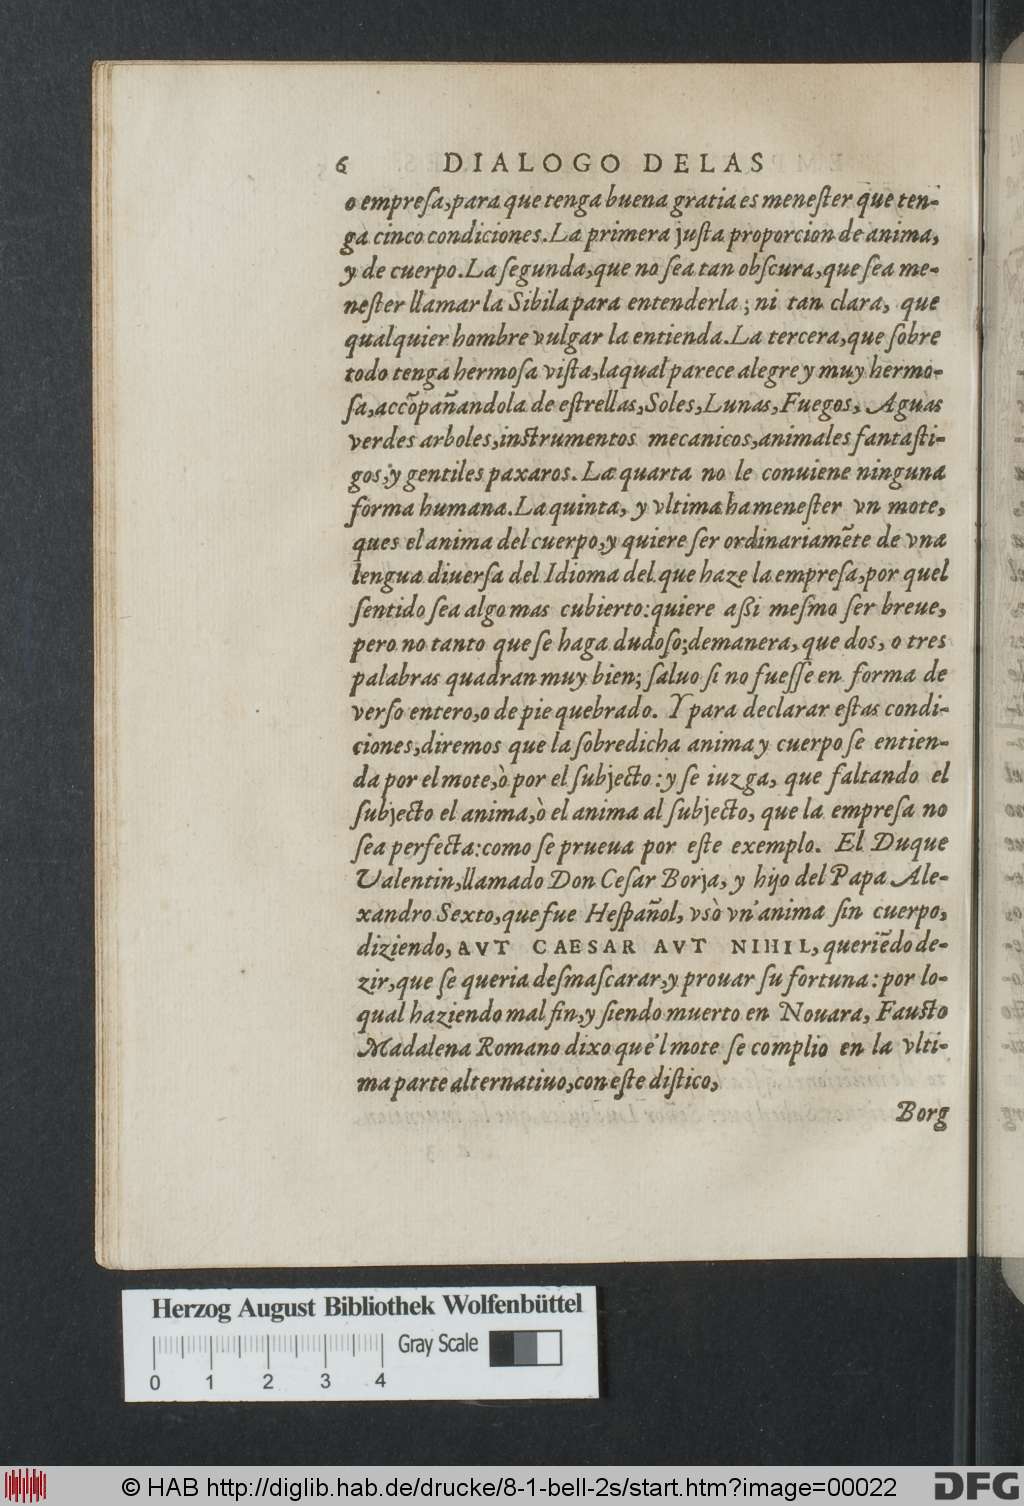 6 DIALOGO DELAS
o empreſa,para que tenga buena gratia es meneſter que ten-
ga cinco condiciones. La primera juſta proporcion de anima,
y de cuerpo. La ſegunda,que no ſea tan obſcura,que ſea me-
neſter llamar la Sibila para entenderla; ni tan clara, que
qualquier hombre vulgar la entienda. La tercera,que ſobre
todo tenga hermoſa viſta,laqual parece alegre y muy hermo-
ſa,accōpañandola de eſtrellas,Soles,Lunas,Fuegos, Aguas
verdes arboles,instrumentos mecanicos,animales fantaſti-
gos,y gentiles paxaros. La quarta no le conuiene ninguna
forma humana. La quinta, y vltima ha meneſter vn mote,
ques el anima del cuerpo,y quiere ſer ordinariamēte de vna
lengua diuerſa del Idioma del que haze la empreſa,por quel
ſentido ſea algo mas cubierto:quiere aßi meſmo ſer breue,
pero no tanto que ſe haga dudoſo;demanera, que dos, o tres
palabras quadran muy bien; ſaluo ſi no fueſſe en forma de
verſo entero,o de pie quebrado. Y para declarar eſtas condi-
ciones,diremos que la ſobredicha anima y cuerpo ſe entien-
da por el mote,ò por el ſubjecto:y ſe iuzga, que faltando el
ſubjecto el anima,ò el anima al ſubjecto, que la empreſa no
ſea perfecta:como ſe prueua por eſte exemplo. El Duque
Valentin,llamado Don Ceſar Borja, y hijo del Papa Ale-
xandro Sexto,que fue Heſpañol, vsò vn'anima ſin cuerpo,
diziendo, AVT CAESAR AVT NIHIL, queriēdo de-
zir,que ſe queria deſmaſcarar,y prouar ſu fortuna: por lo-
qual haziendo mal fin,y ſiendo muerto en Nouara, Fausto
Madalena Romano dixo que'l mote ſe complio en la vlti-
ma parte alternatiuo,con eſte diſtico,
Borg
Herzog August Bibliothek Wolfenbüttel
Gray Scale
0 1 2 3 4
© HAB http://diglib.hab.de/drucke/8-1-bell-2s/start.htm?image=00022
DFG